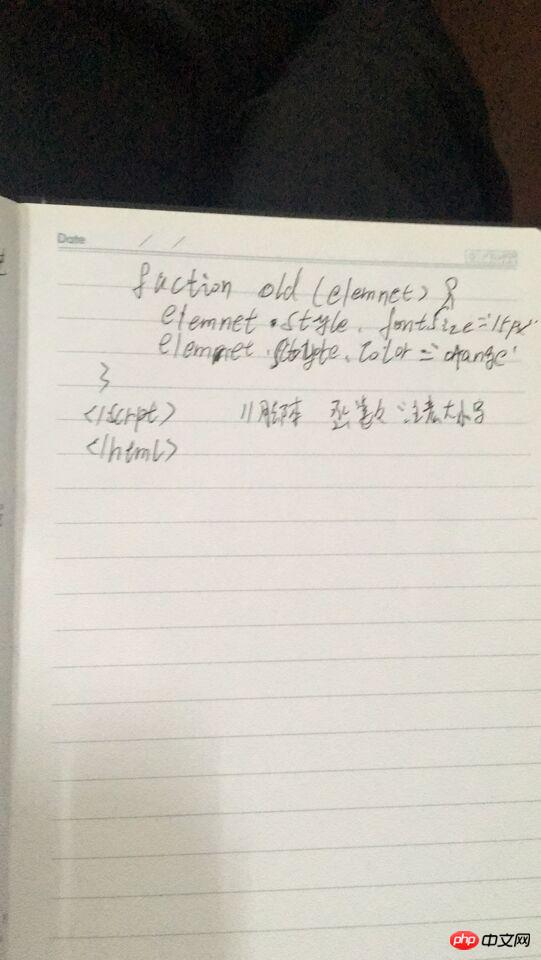 Date / /
fuction old (elemnet) {
elemnet.style.fontSize='15px'
elemnet.style.color='orange'
}
</script> //脚本 注意大小写
</html>
php 中文网